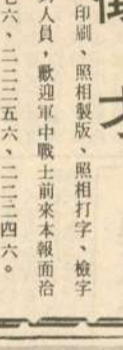 才
印刷、照相製版、照相打字、檢字
人員，歡迎軍中戰士前來本報面洽
六、二二二五六、二二三四六。